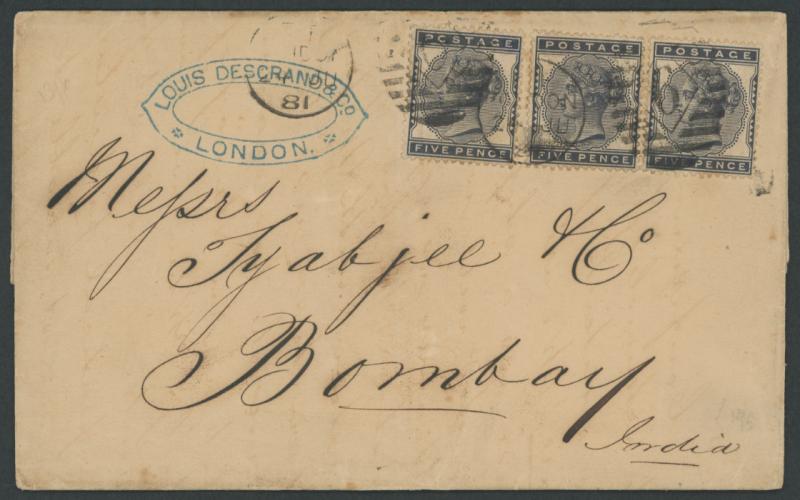 LOUIS DESCRAND & Co.
LONDON.
81
POSTAGE
FIVE PENCE
POSTAGE
FIVE PENCE
POSTAGE
FIVE PENCE
Messrs
Tyabjee & Co
Bombay
India